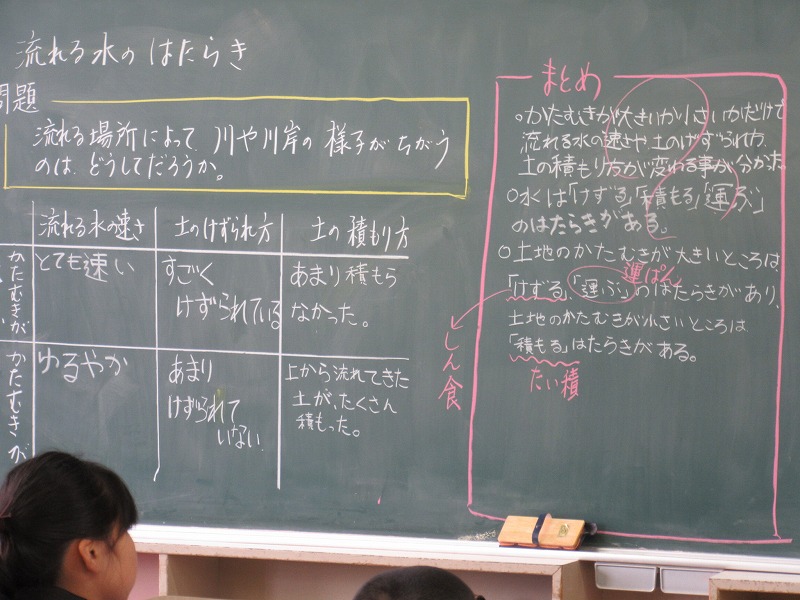 流れる水のはたらき
問題
流れる場所によって、川や川岸の様子がちがう
のは、どうしてだろうか。
流れる水の速さ
土のけずられ方
土の積もり方
かたむきが
とても速い
すごく
けずられている
あまり積もら
なかった。
かたむきが
ゆるやか
あまり
けずられて
いない
上から流れてきた
土が、たくさん
積もった。
まとめ
○かたむきが大きいか小さいかだけで
流れる水の速さや、土のけずられ方、
土の積もり方が変わる事が分かった
○水は「けずる」「積もる」「運ぶ」
のはたらきがある。
○土地のかたむきが大きいところは、
運ぱん
「けずる」、「運ぶ」のはたらきがあり、
土地のかたむきが小さいところは
「積もる」はたらきがある。
しん食
たい積